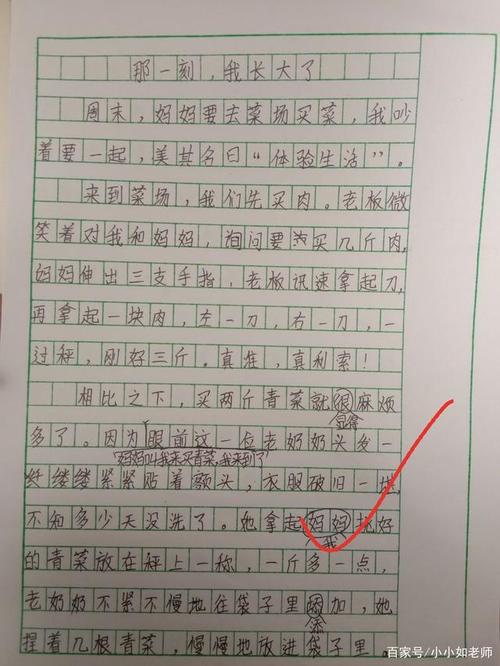 那一刻，我长大了
周末，妈妈要去菜场买菜，我吵
着要一起，美其名曰“体验生活”。
来到菜场，我们先买肉。老板微
笑着对我和妈妈，询问要买几斤肉，
妈妈伸出三支手指，老板讯速拿起刀，
再拿起一块肉，左一刀，右一刀，一
过秤，刚好三斤。真准，真利索！
相比之下，买两斤青菜就很麻烦
显得
多了。因为眼前这一位老奶奶头发一
“妈妈叫我来买青菜，我来到了”
缕缕紧紧贴着额头，衣服破旧一块，
不知多少天没洗了。她拿起妈妈挑好
我
的青菜放在秤上一称，一斤多一点，
老奶奶不紧不慢地往袋子里加，她
添
捏着几根青菜，慢慢地放进袋子里。
百家号/小小如老师